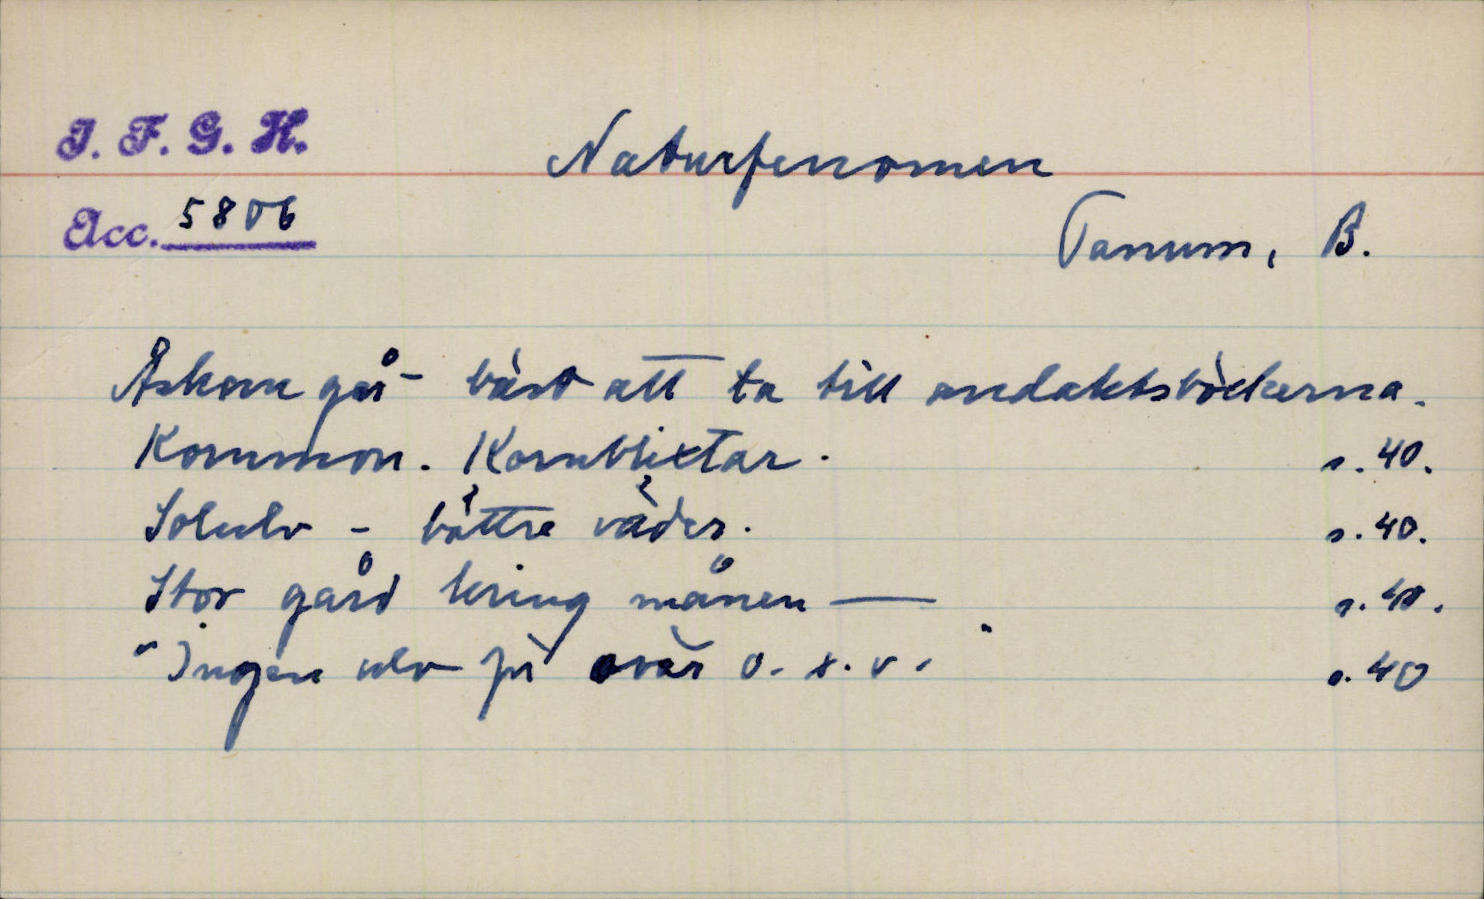 I. F. G. H.
Naturfenomen
Acc. 5806
Tanum, B.
Åskan går - bäst att ta till andaktsböckerna.
Kornmon. Kornblixtar. s. 40.
Solulv - bättre väder. s. 40.
Stor gård kring månen — s. 40.
"Ingen ulv på svär o. s. v." s. 40